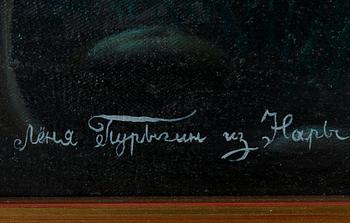 Лёня Пурыгин из Нары